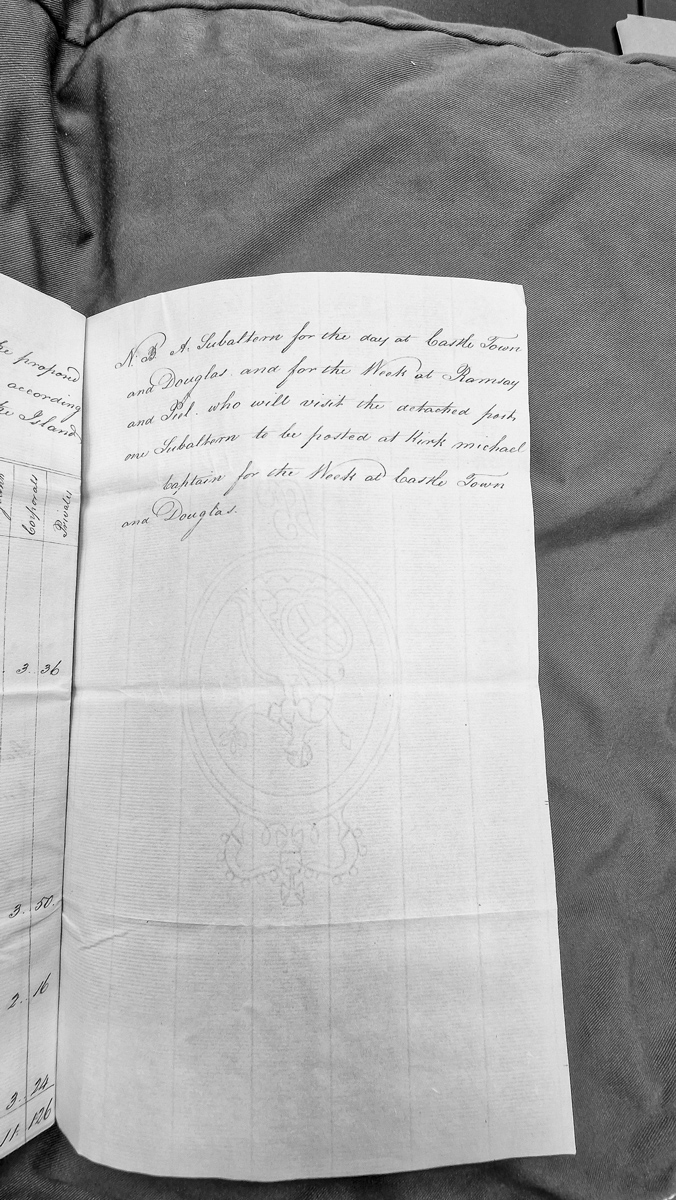 he propond
according
he Island
Corporals
Privates
3. 36
3. 50.
2. 16
3. 24
11. 126
N. B A. Subaltern for the day at Castle Town
and Douglas. and for the Week at Ramsay
and Piel. who will visit the detached posts
one Subaltern to be posted at Kirk michael
Captain for the Week at Castle Town
and Douglas.